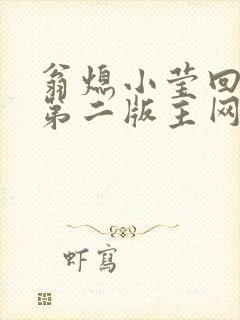 翁熄小莹回
第二版主网
虾寫